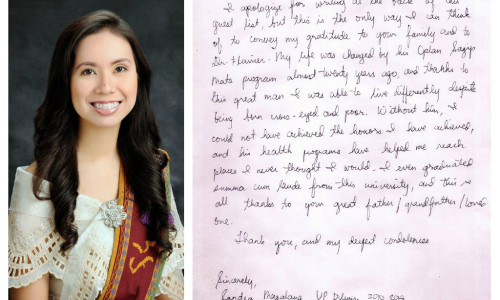 I apologize for writing at the back of this
guest list, but this is the only way I can think
of to convey my gratitude to your family and to
Flavier. My life was changed by his Oplan Sagip
Mata program almost twenty years ago, and thanks to
this great man I was able to live differently despite
being born cross-eyed and poor. Without him, I
could not have achieved the honors I have achieved,
and his health programs have helped me reach
places I never thought I would. I even graduated
summa cum laude from this university, and this is
all thanks to your great father/grandfather/loved
one.
Thank you, and my deepest condolences
Sincerely,
UP Diliman